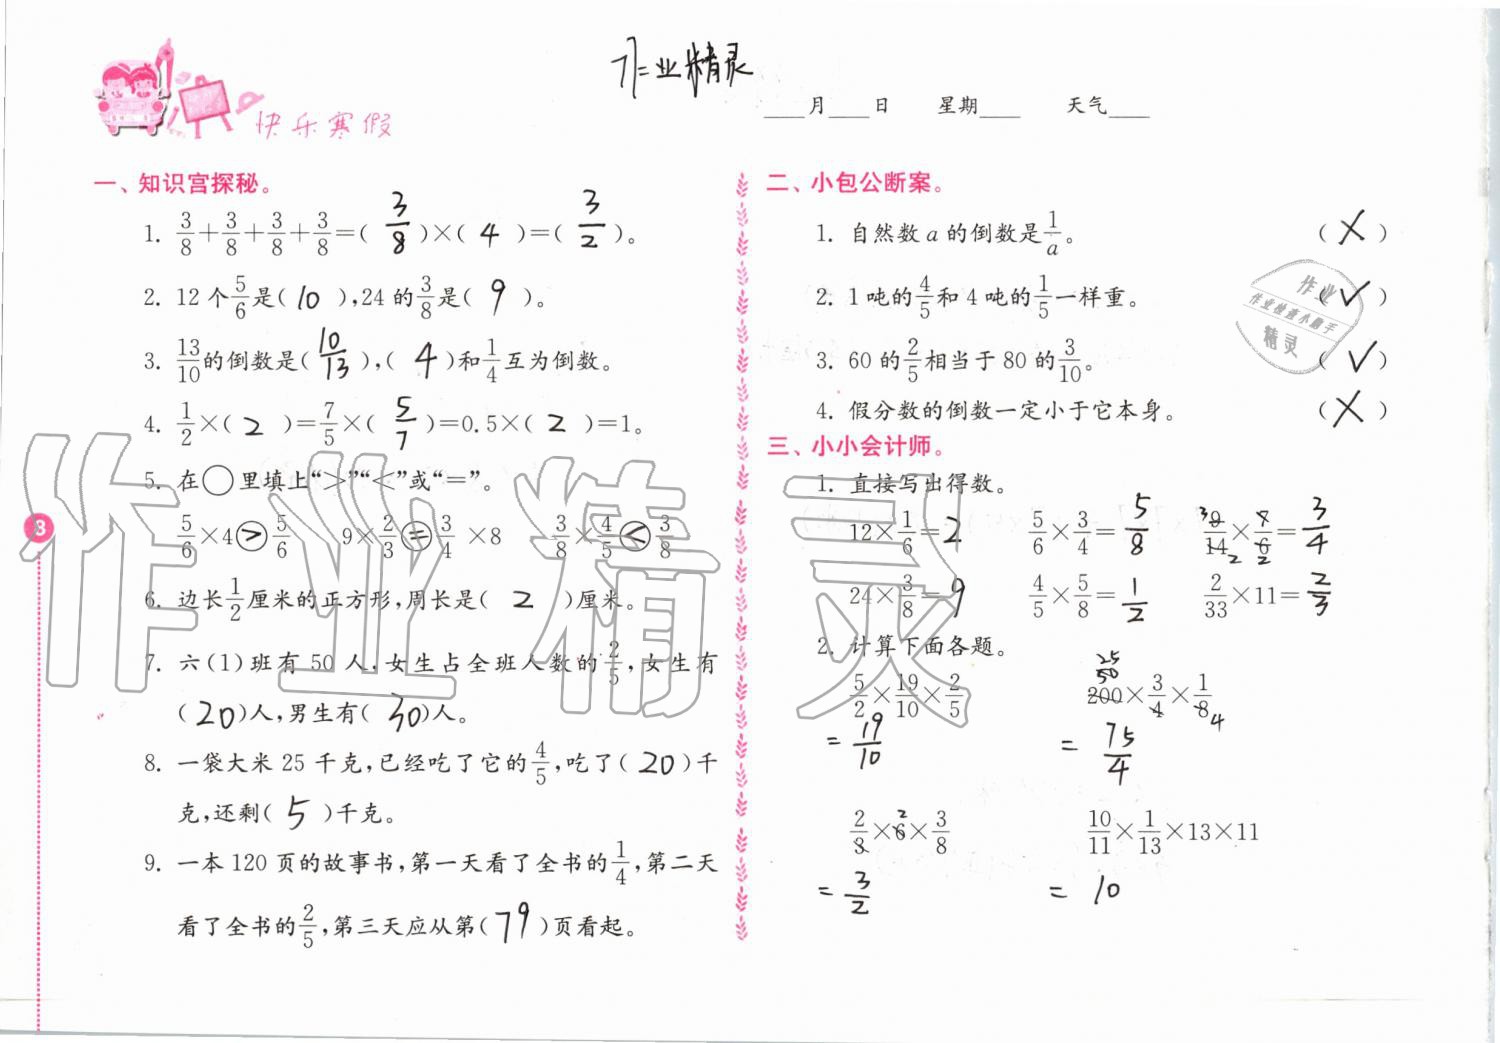 作业精灵
快乐寒假
____月____日 星期____ 天气____
一、知识宫探秘。
1. 3/8+3/8+3/8+3/8=( 3/8 )×( 4 )=( 3/2 )。
2. 12个5/6是( 10 ),24的3/8是( 9 )。
3. 13/10的倒数是( 10/13 ),( 4 )和1/4互为倒数。
4. 1/2×( 2 )=7/5×( 5/7 )=0.5×( 2 )=1。
5. 在○里填上“>”“<”或“=”。
5/6×4>5/6 9×2/3=3/4×8 3/8×4/5<3/8
6. 边长1/2厘米的正方形,周长是( 2 )厘米。
7. 六(1)班有50人,女生占全班人数的2/5,女生有
(20)人,男生有(30)人。
8. 一袋大米25千克,已经吃了它的4/5,吃了(20)千
克,还剩( 5 )千克。
9. 一本120页的故事书,第一天看了全书的1/4,第二天
看了全书的2/5,第三天应从第(79)页看起。
3
二、小包公断案。
1. 自然数a的倒数是1/a。 (×)
2. 1吨的4/5和4吨的1/5一样重。 (✓)
3. 60的2/5相当于80的3/10。 (✓)
4. 假分数的倒数一定小于它本身。 (×)
三、小小会计师。
1. 直接写出得数。
12×1/6=2 5/6×3/4=5/8 9/14×7/6=3/4
24×3/8=9 4/5×5/8=1/2 2/33×11=2/3
2. 计算下面各题。
25
50
5/2×19/10×2/5 200×3/4×1/8 4
=19/10 =75/4
2/3×6×3/8 10/11×1/13×13×11
=3/2 =10
作业
作业检查小助手
精灵
作业精灵